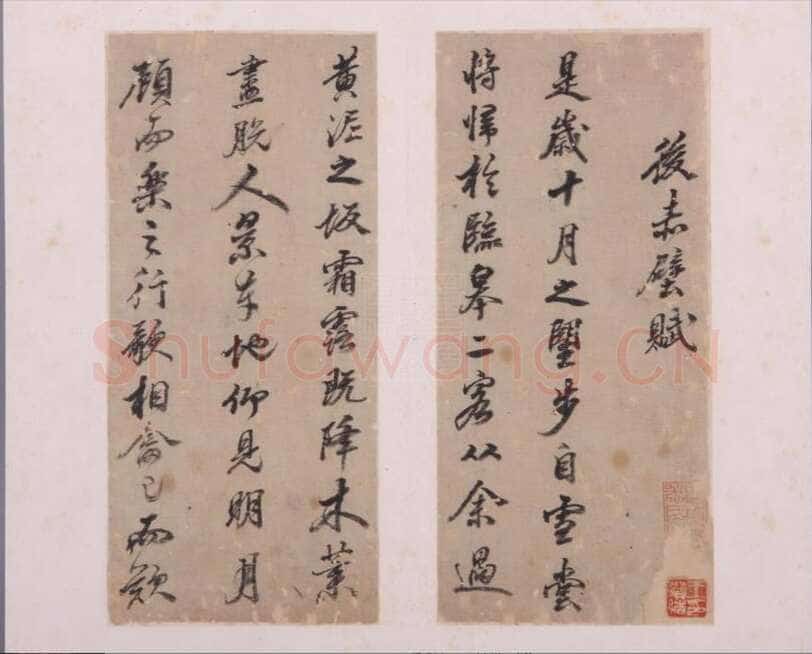 後赤壁賦
是歲十月之朢步自雪堂
將歸於臨皋二客从余過
黃泥之坂霜露既降木葉
盡脫人景在地仰見明月
顧而樂之行歌相畣已而歎
Shufawang.CN